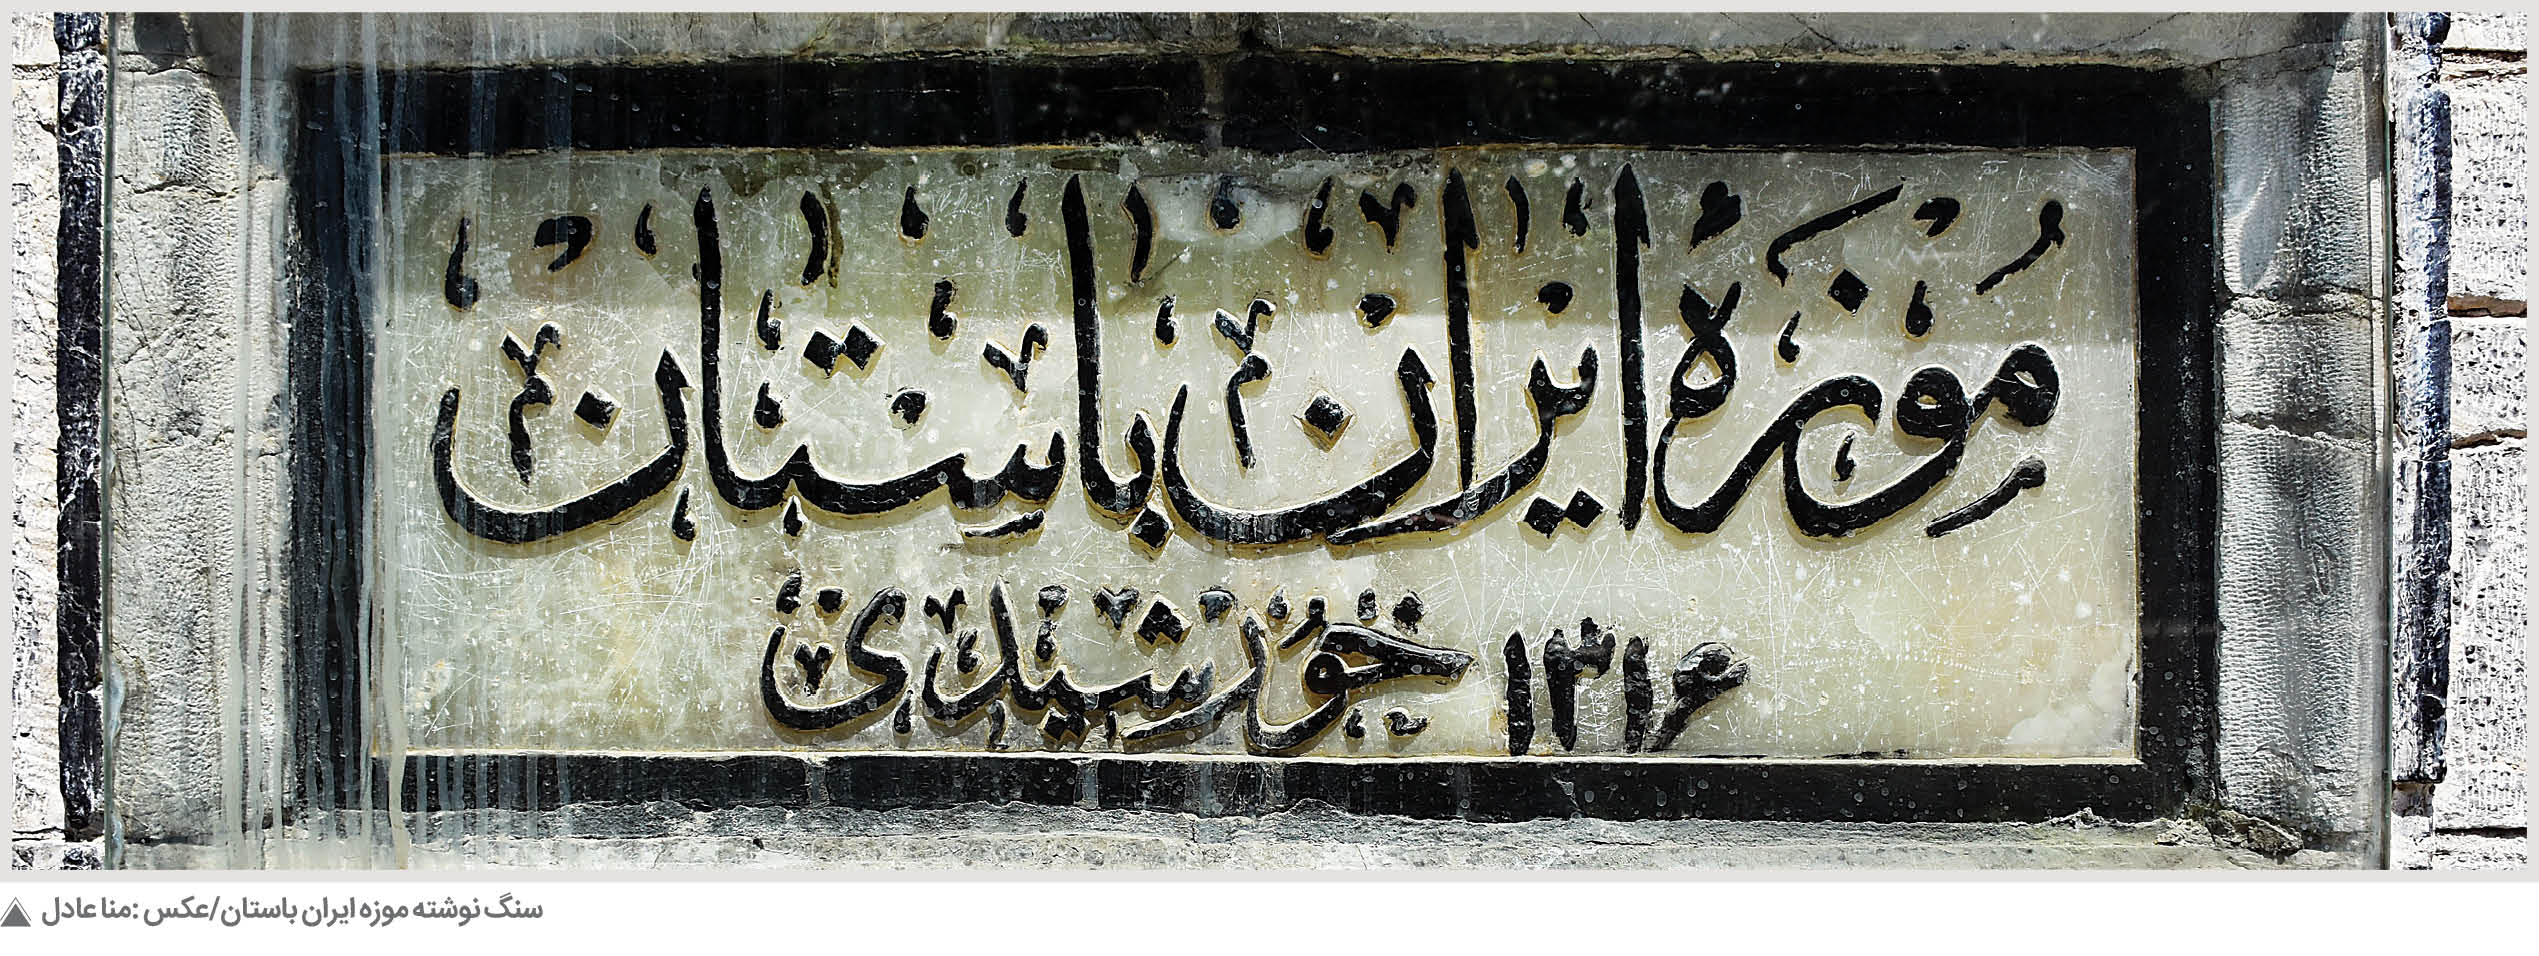 موزه ایران باستان
۱۳۱۶ خورشیدی
سنگ نوشته موزه ایران باستان/عکس :منا عادل